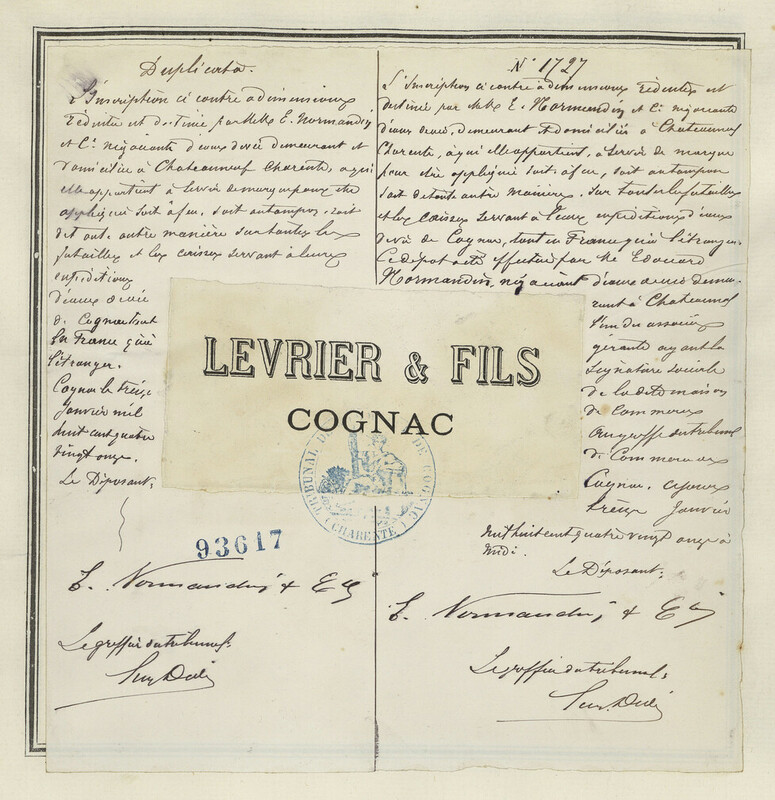 Duplicata.
L'Inscription ci contre à dimensions
réduites est destinée par Mrs E. Normandin
et Cie négociants d'eaux de vie demeurant et
domiciliés à Chateauneuf Charente, à qui
elle appartient à servir de marque pour être
appliquée soit à feu, soit au tampon, soit
de toute autre manière sur toutes les
futailles et les caisses servant à leurs
expéditions
d'eaux de vie
de Cognac tant
en France qu'à
l'étranger.
Cognac le treize
Janvier mil
huit cent quatre
vingt onze.
Le Déposant,
93617
E. Normandin & Cie
Le greffier du tribunal,
N° 1727
L'Inscription ci contre à dimensions réduites est
destinée par Mrs E. Normandin et Cie négociants
d'eaux de vie, demeurant & domiciliés à Chateauneuf
Charente, à qui elle appartient, à servir de marque
pour être appliquée soit à feu, soit au tampon
soit de toute autre manière, sur toutes les futailles
et les caisses servant à leurs expéditions d'eaux
de vie de Cognac, tant en France qu'à l'étranger.
Ce dépôt a été effectué par Mr Edouard
Normandin, négociant d'eaux de vie demeu-
rant à Chateauneuf
l'un des associés
gérants ayant la
signature sociale
de la dite maison
de Commerce
au greffe du tribunal
de Commerce de
Cognac, ce jour
treize Janvier
mil huit cent quatre vingt onze à
midi.
Le Déposant,
E. Normandin & Cie
Le greffier du tribunal,
LEVRIER & FILS
COGNAC
TRIBUNAL DE COMMERCE DE COGNAC
(CHARENTE)